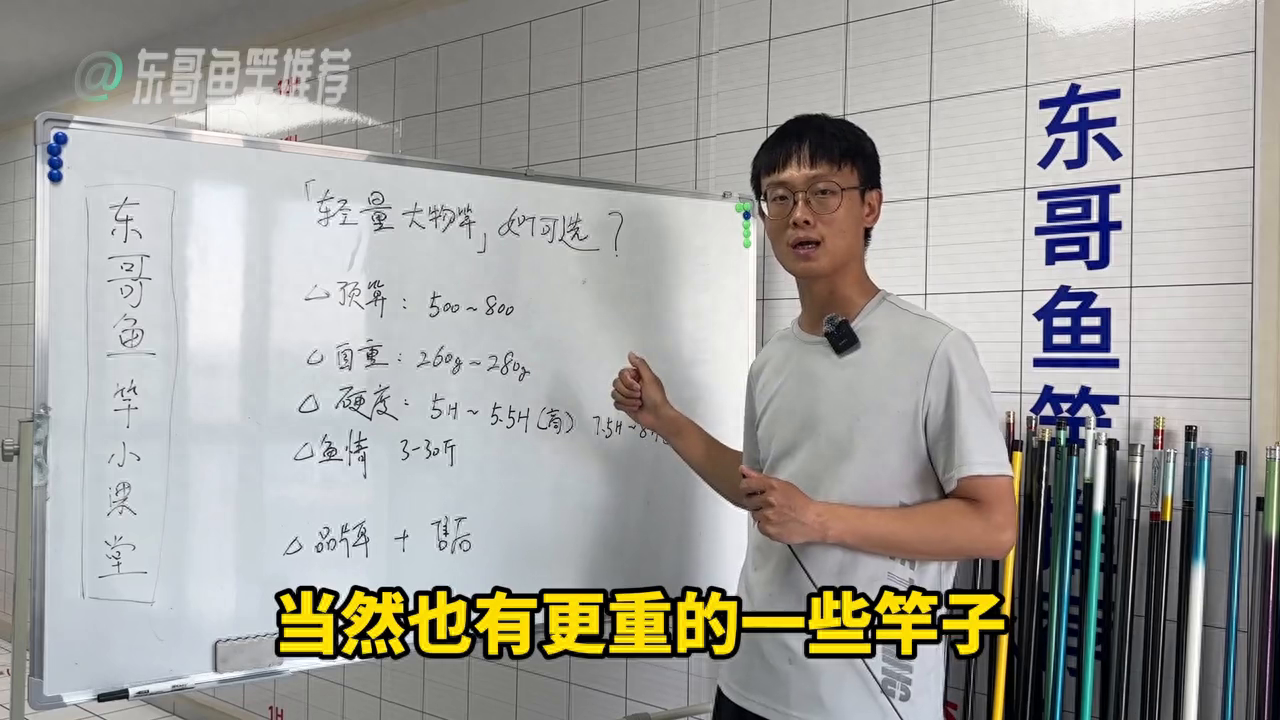 @东哥鱼竿推荐
东哥鱼竿小课堂
「轻量大物竿」如何选？
△预算：500~800
△自重：260g~280g
△硬度：5H~5.5H(高) 7.5H~
△鱼情 3-30斤
△品牌 + 售后
东哥鱼竿
当然也有更重的一些竿子
1H